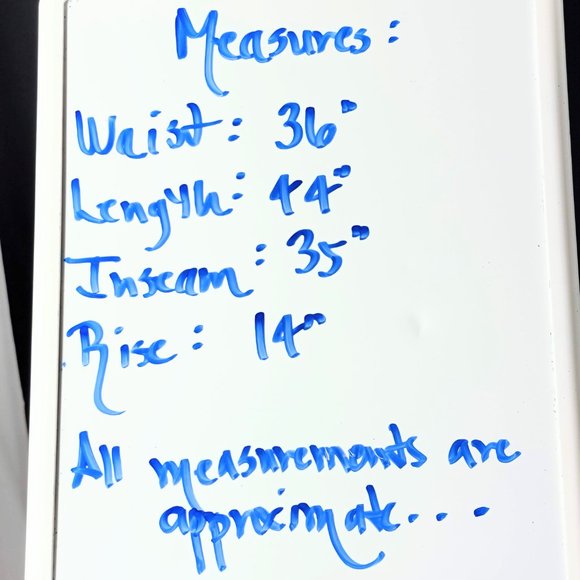 Measures:
Waist: 36"
Length: 44"
Inseam: 35"
Rise: 14"
All measurements are
approximate...